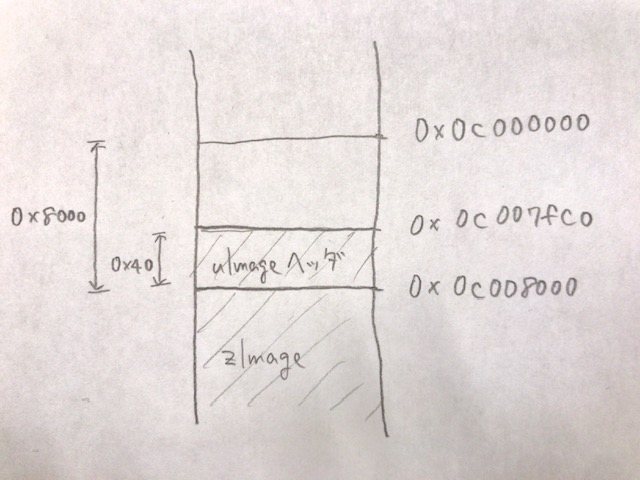 0x0c000000
0x8000
0x 0c007fc0
0x40
uImage ヘッダ
0x 0c008000
zImage